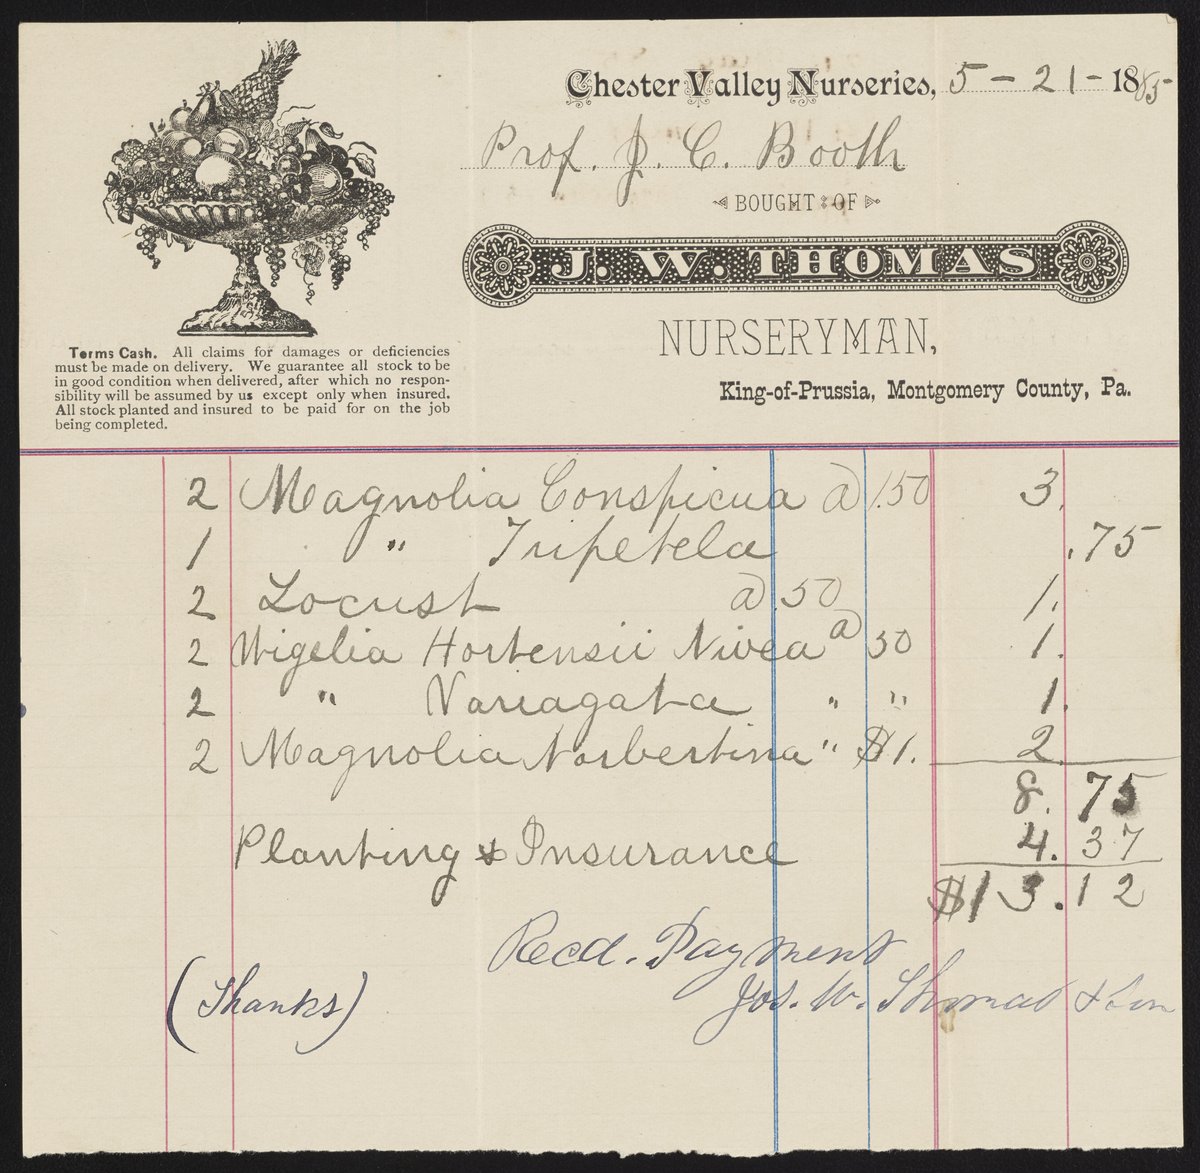 Chester Valley Nurseries, 5 - 21 - 1885
Prof. J. C. Booth
BOUGHT OF
J. W. THOMAS
NURSERYMAN,
King-of-Prussia, Montgomery County, Pa.
Terms Cash. All claims for damages or deficiencies
must be made on delivery. We guarantee all stock to be
in good condition when delivered, after which no respon-
sibility will be assumed by us except only when insured.
All stock planted and insured to be paid for on the job
being completed.
2 Magnolia Conspicua @ 1.50 3.
1 " Tripetela .75
2 Locust @ .50 1.
2 Wigelia Hortensii Nivea @ 50 1.
2 " Variagata " " 1.
2 Magnolia Norbertina " $1. 2.
8.75
Planting & Insurance 4.37
$13.12
Recd. Payment
(Thanks) Jos. W. Thomas & Son